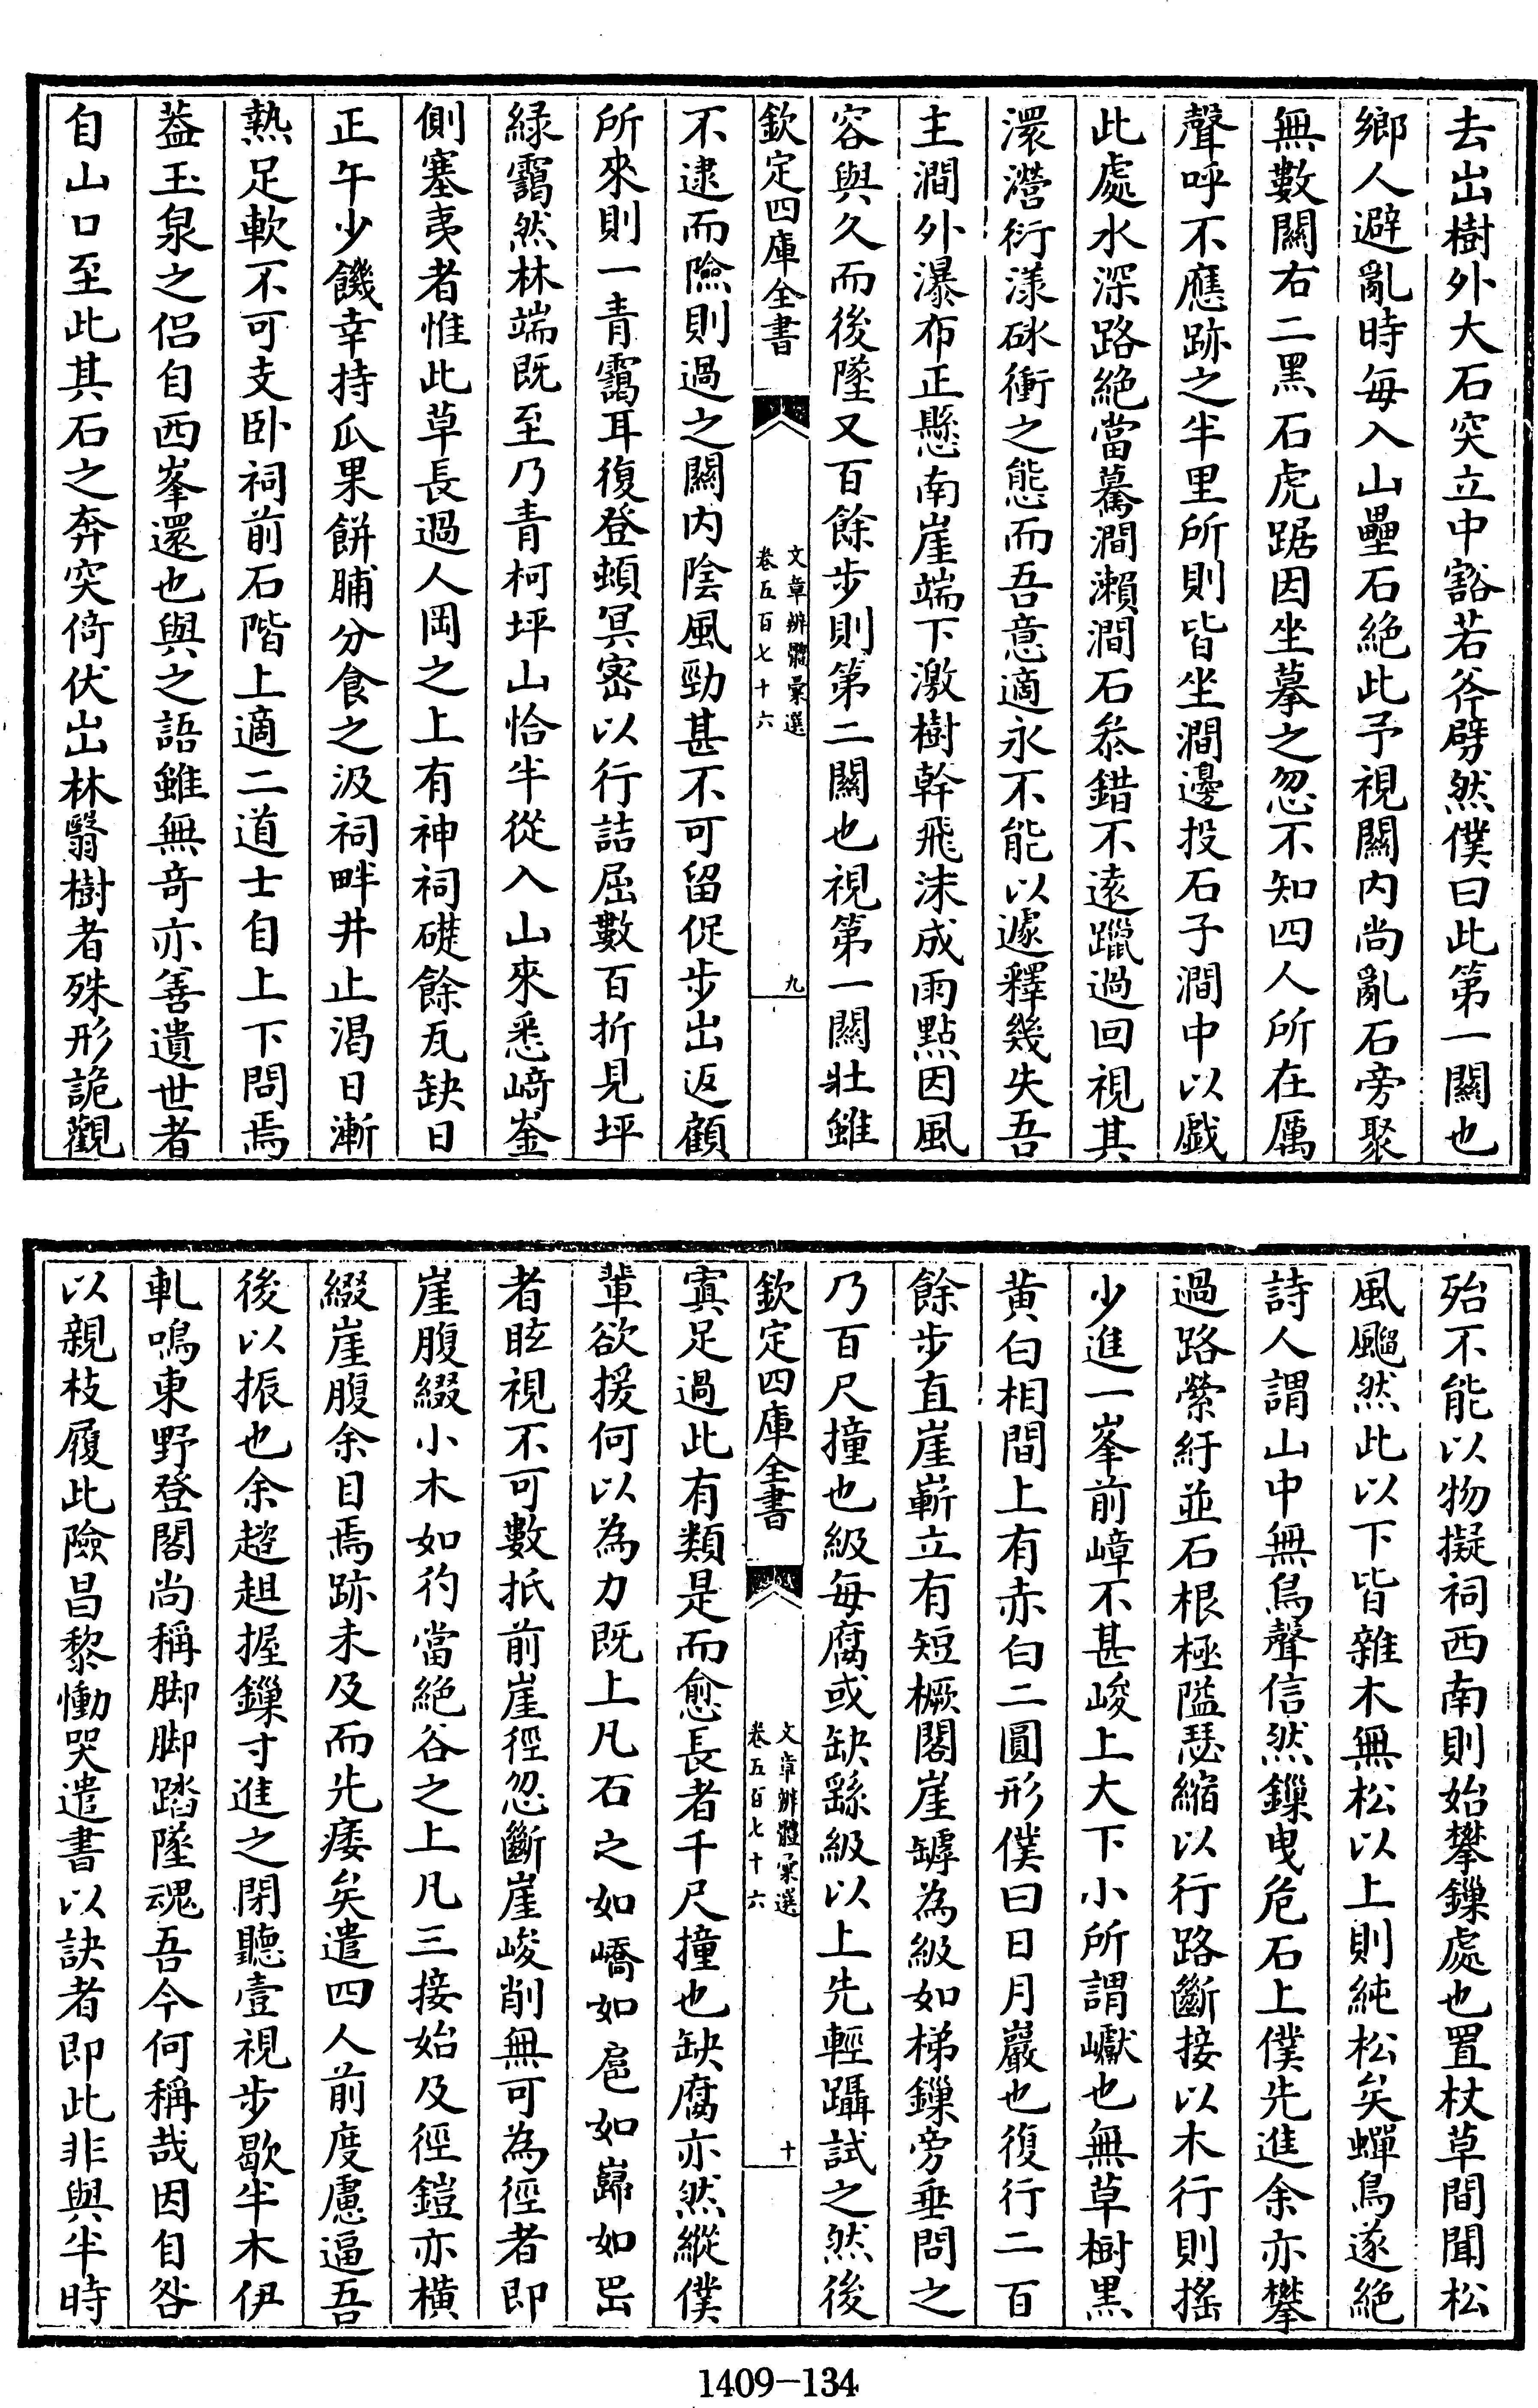 去出樹外大石突立中豁若斧劈然僕曰此第一關也
鄉人避亂時每入山壘石絶此予視關内尚亂石旁聚
無數關右二黑石虎踞因坐摹之忽不知四人所在厲
聲呼不應跡之半里所則皆坐澗邊投石子澗中以戯
此處水深路絶當驀澗瀬澗石叅錯不遠躐過回視其
澴瀯衍漾砅衝之態而吾意適永不能以遽釋幾失吾
主澗外瀑布正懸南崖端下激樹幹飛沫成雨點因風
容與久而後墜又百餘步則第二關也視第一關壯雖
欽定四庫全書
文章辨體彚選
卷五百七十六
九
不逮而險則過之關内陰風勁甚不可留促步出返顧
所來則一青靄耳復登頓冥宻以行詰屈數百折見坪
緑靄然林端既至乃青柯坪山恰半從入山來悉﨑崟
側塞夷者惟此草長過人岡之上有神祠礎餘瓦缺日
正午少饑幸持瓜果餅脯分食之汲祠畔井止渴日漸
熱足軟不可支卧祠前石階上適二道士自上下問焉
葢玉泉之侣自西峯還也與之語雖無奇亦善遺世者
自山口至此其石之奔突倚伏出林翳樹者殊形詭觀
殆不能以物擬祠西南則始攀鏁處也置杖草間聞松
風颼然此以下皆雜木無松以上則純松矣蟬鳥遂絶
詩人謂山中無鳥聲信然鏁曳危石上僕先進余亦攀
過路縈紆並石根極隘瑟縮以行路斷接以木行則搖
少進一峯前嶂不甚峻上大下小所謂巘也無草樹黒
黄白相間上有赤白二圓形僕曰日月巖也復行二百
餘步直崖嶄立有短橛閣崖罅為級如梯鏁旁垂問之
乃百尺撞也級每腐或缺繇級以上先輕躡試之然後
欽定四庫全書
文章辨體彚選
卷五百七十六
十
寘足過此有類是而愈長者千尺撞也缺腐亦然縱僕
輩欲援何以為力既上凡石之如嶠如扈如巋如岊
者眩視不可數抵前崖徑忽斷崖峻削無可為徑者即
崖腹綴小木如彴當絶谷之上凡三接始及徑鎧亦横
綴崖腹余目焉跡未及而先痿矣遣四人前度慮逼吾
後以振也余趑趄握鏁寸進之閉聽壹視步歇半木伊
軋鳴東野登閣尚稱脚脚踏墜魂吾今何稱哉因自咎
以親枝履此險昌黎慟哭遣書以訣者即此非與半時